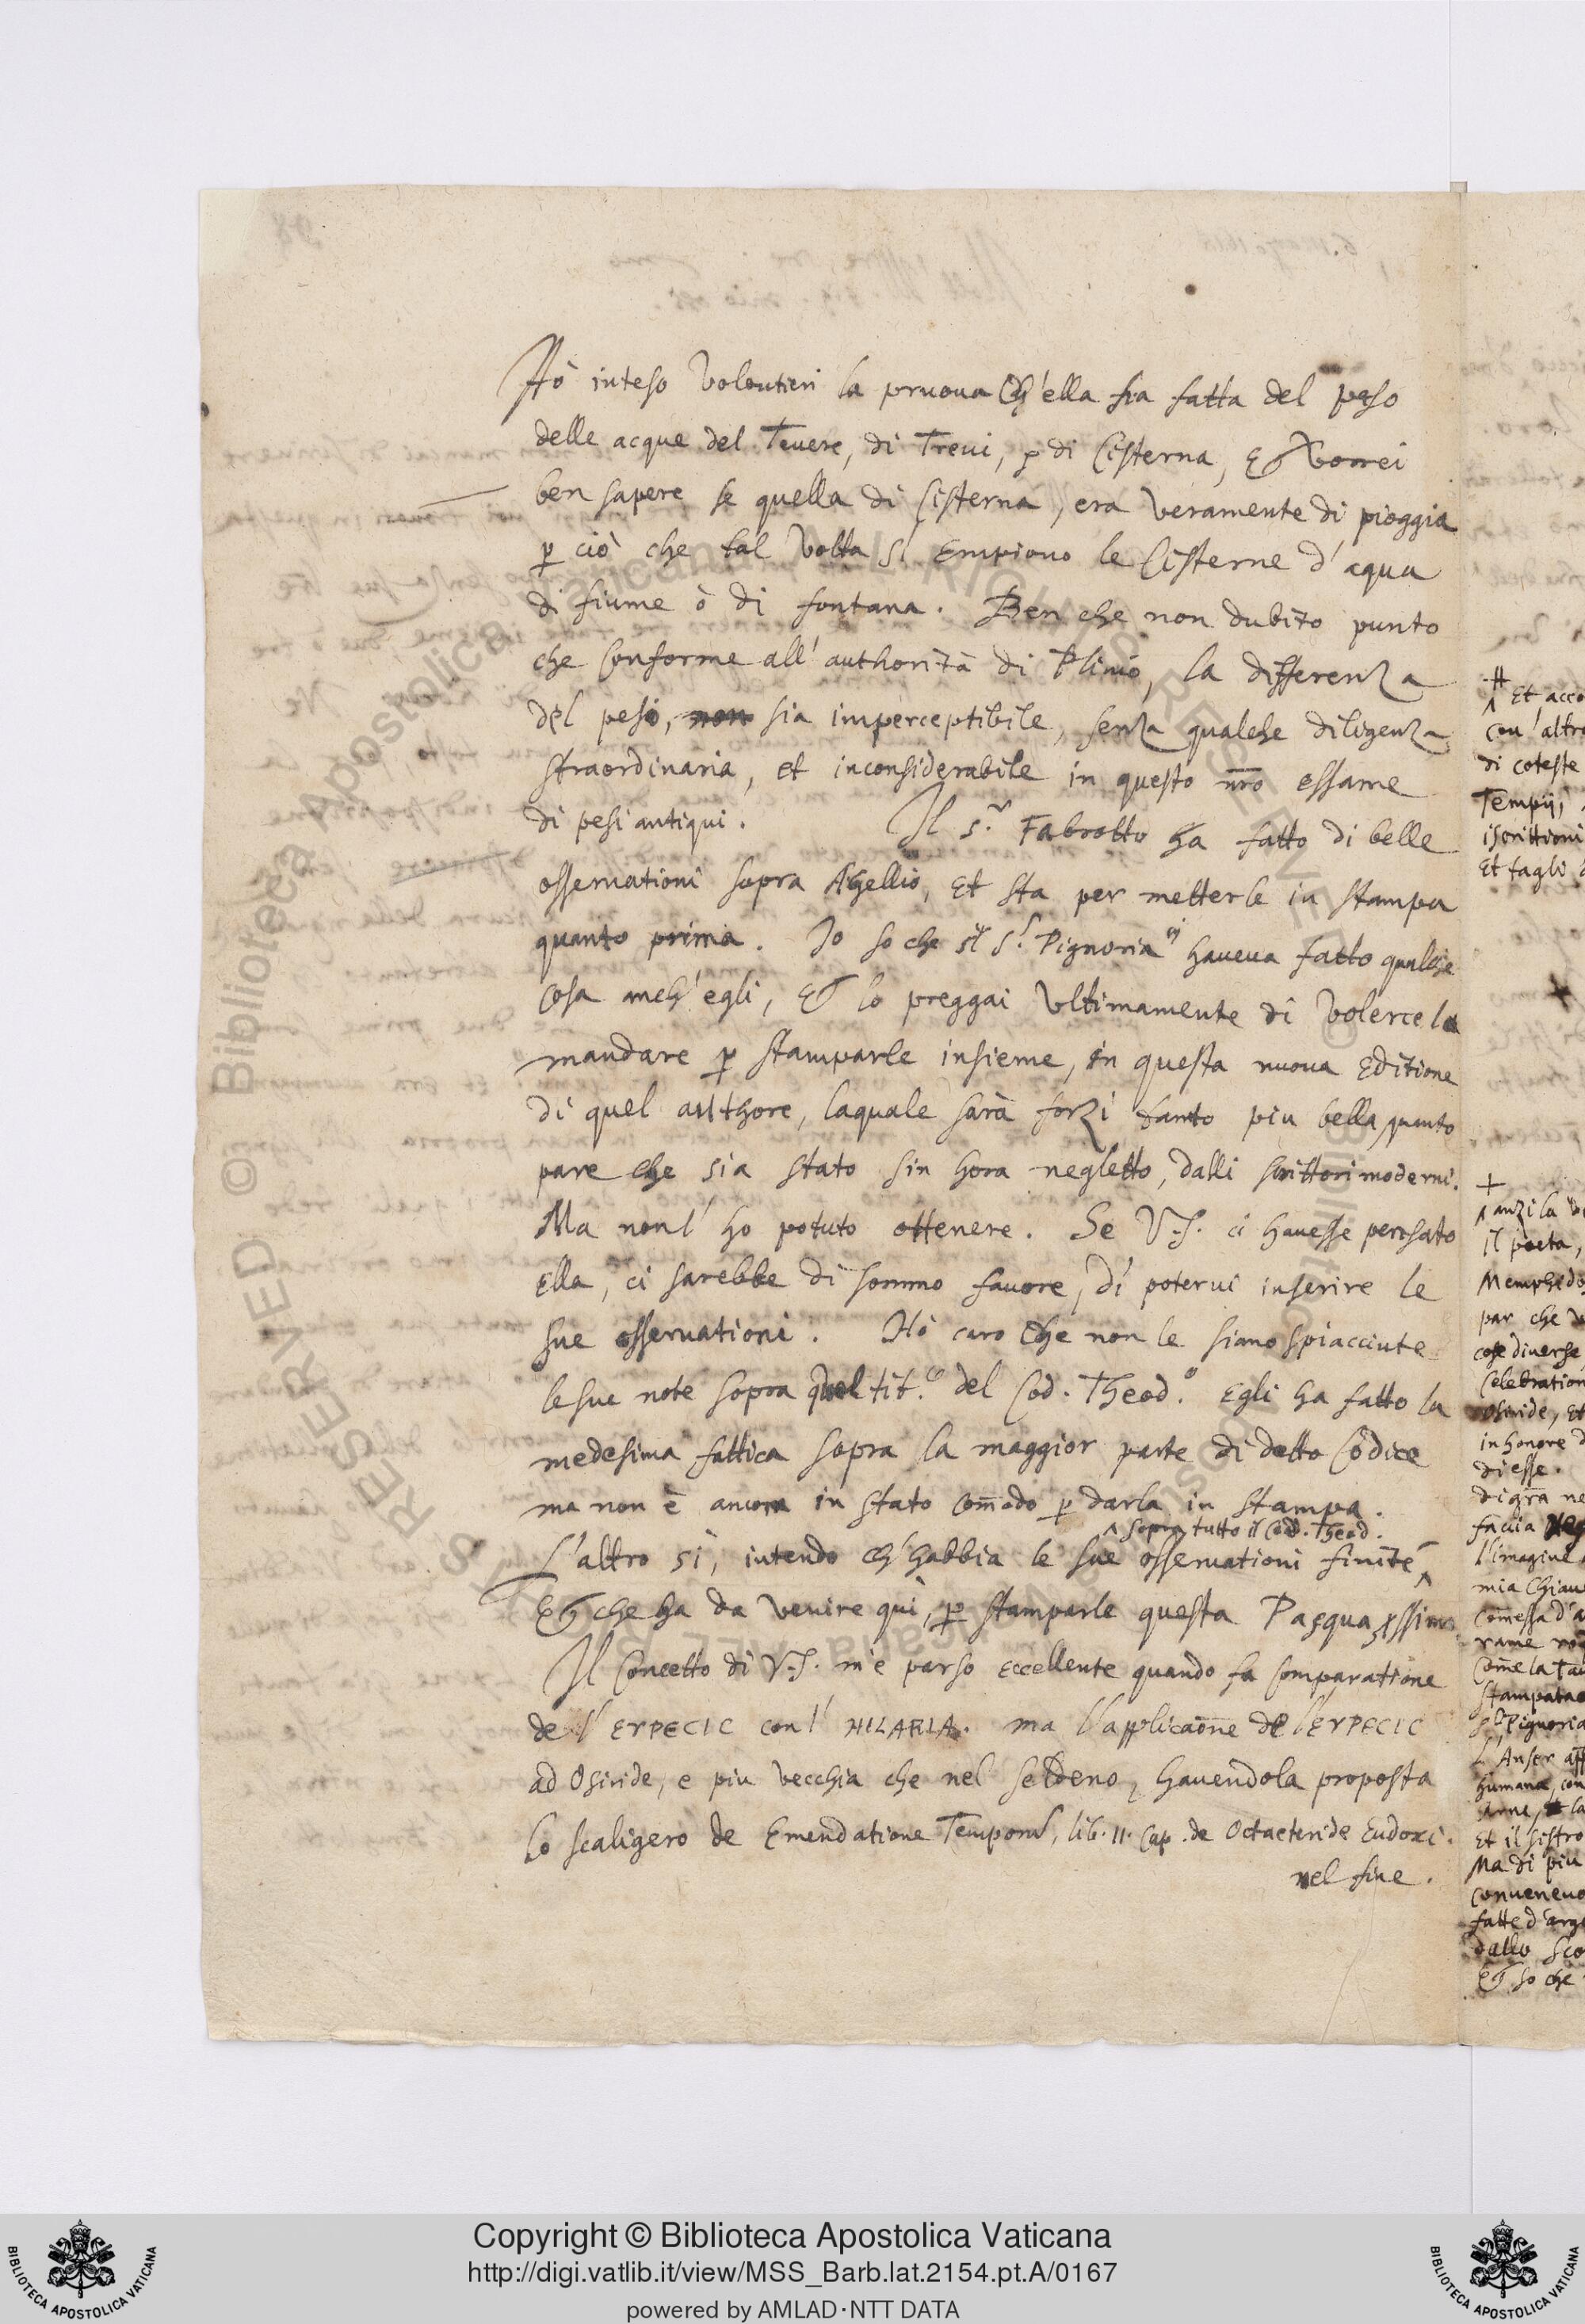 Hò inteso volontieri la pruova ch'ella ha fatta del peso
delle acque del Tevere, di Trevi, e di Cisterna, et vorrei
ben sapere se quella di Cisterna, era veramente di pioggia
ꝑ ciò che tal volta si empiono le Cisterne d'aqua
di fiume ò di fontana. Ben che non dubito punto
che conforme all' authorità di Plinio, la differenza
del peso, non sia imperceptibile, senza qualche diligenza
straordinaria, et inconsiderabile in questo nr̃o essame
di pesi antiqui. Il s.r Fabrotto ha fatto di belle
osservationi sopra Agellio, et sta per metterle in stampa
quanto prima. Io so che il s.r Pignoria haveva fatto qualche
cosa anch'egli, et lo preggai ultimamente di volercela
mandare ꝑ stamparle insieme, in questa nuova editione
di quel authore, laquale sarà forzi tanto piu bella quanto
pare che sia stato sin hora negletto, dalli scrittori moderni.
Ma non l' ho potuto ottenere. Se V.S. ci havesse pensato
ella, ci sarebbe di sommo favore, di potervi inserire le
sue osservationi. Hò caro che non le siano spiacciute
le sue note sopra quel tit.o del Cod. Theod.o Egli ha fatto la
medesima fattica sopra la maggior parte di detto Codice
ma non è ancora in stato com̃odo ꝑ darla in stampa.
^ sopra tutto il Cod. Theod.
L'altro sì, intendo ch'habbia le sue osservationi finite ^
et che ha da venire quì, ꝑ stamparle questa Pasqua
Il concetto di V.S. m'è parso eccellente quando fa comparatione
de l' ΕΥΡΕCΙC con l' HILARIA. ma l'applicaõne de l'ΕΥΡΕCΙC
ad Osiride, e piu vecchia che nel seldeno, havendola proposta
lo scaligero de Emendatione Temporũ, lib. II. Cap. de Octaeteride Eudoxi.
nel fine.
⧺
^ Et acco
con l'altro
di coteste
Tempij,
iscrittioni
et tagli
+
^ anzi la
il poeta,
par che
cose diverse
celebration
Osiride, et
in honore d
di esse.
digr̃a ne
faccia
l'imagine
mia
com̃essa d'a
rame
com̃e la
stampata
Pignoria
L'Anser
humana, con
et il sistro
Ma di piu
fatte d'arg
dallo Sco
et so che
Copyright © Biblioteca Apostolica Vaticana
http://digi.vatlib.it/view/MSS_Barb.lat.2154.pt.A/0167
powered by AMLAD·NTT DATA
BIBLIOTECA APOSTOLICA VATICANA
BIBLIOTECA APOSTOLICA VATICANA